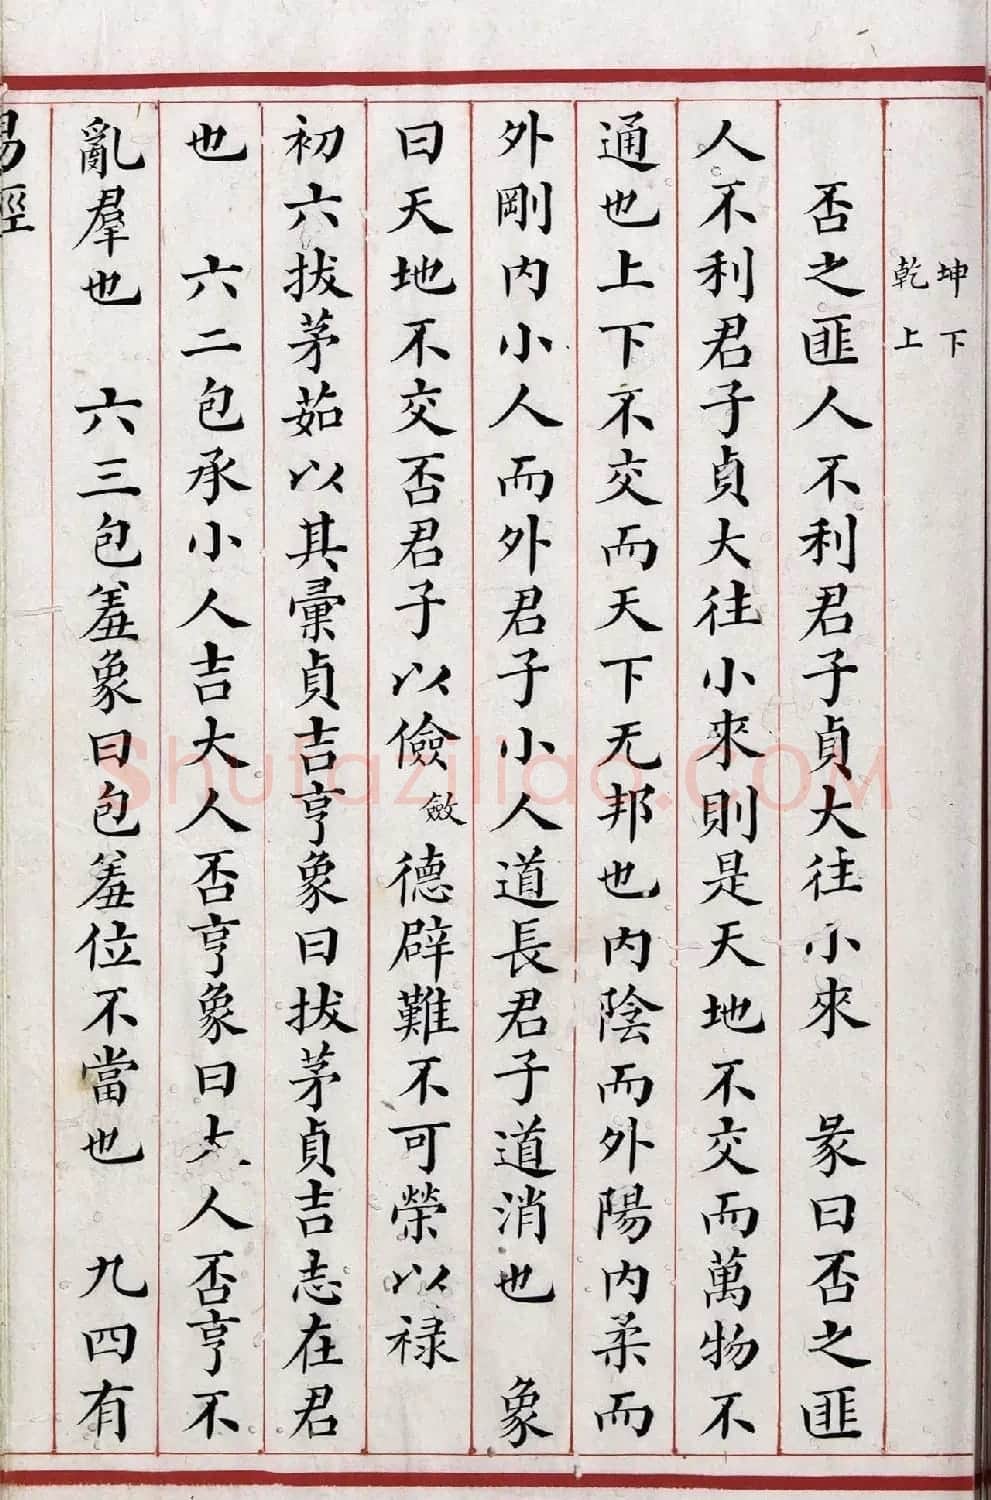 坤下
乾上
否之匪人不利君子貞大往小來　彖曰否之匪
人不利君子貞大往小來則是天地不交而萬物不
通也上下不交而天下无邦也內陰而外陽內柔而
外剛內小人而外君子小人道長君子道消也　象
曰天地不交否君子以儉斂德辟難不可榮以祿
初六拔茅茹以其彙貞吉亨象曰拔茅貞吉志在君
也　六二包承小人吉大人否亨象曰大人否亨不
亂羣也　六三包羞象曰包羞位不當也　九四有
易經
shufaziliao.com